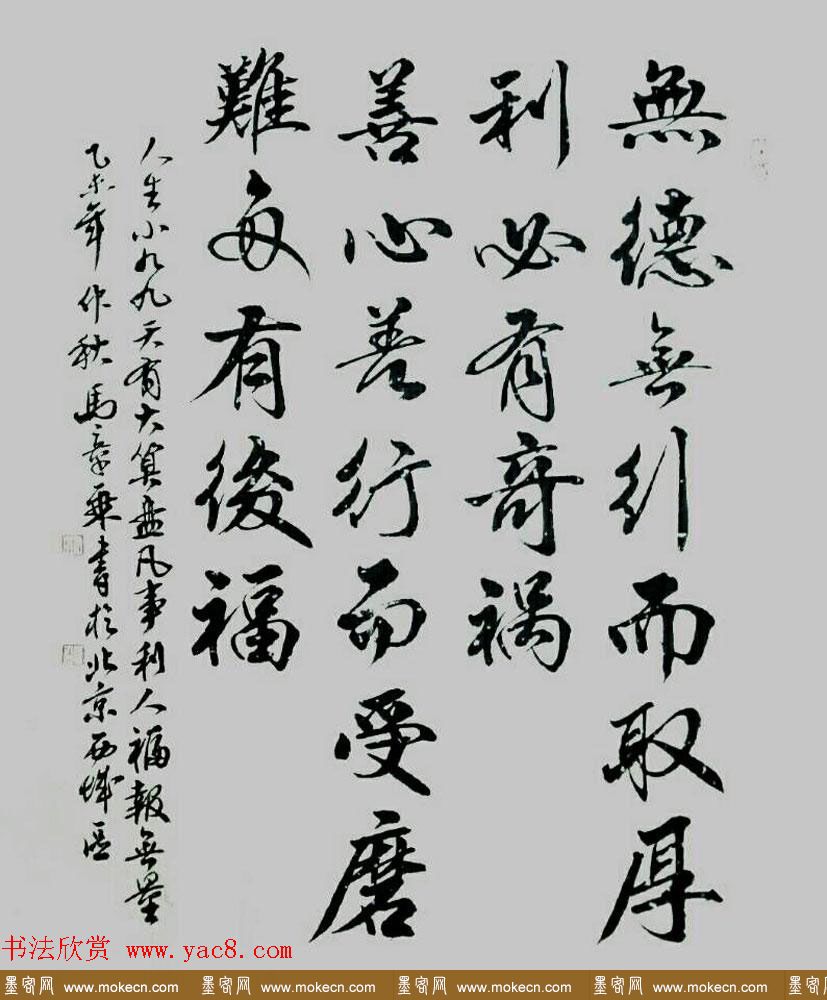 無德無行而取厚
利必有奇禍
善心善行而受磨
難每有後福
人生小九九天有大算盘凡事利人福報無量
乙未年仲秋馬章乘書於北京西城區
书法欣赏 www.yac8.com
墨客网 www.mokecn.com 墨客网 www.mokecn.com 墨客网 www.mokecn.com 墨客网 www.mokecn.com